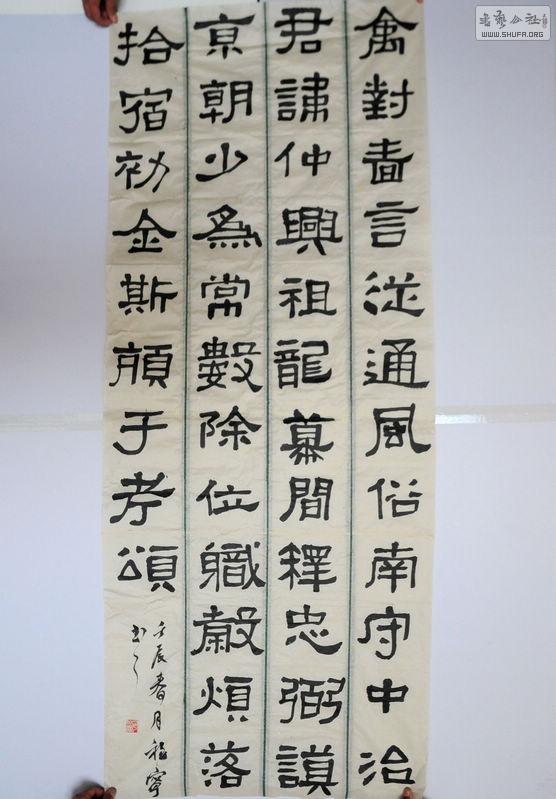 禽對言從通風俗南守中治
君仲興祖龍墓間釋忠弼謨
京朝少為常數除位職穀煩落
拾宿初金斯于孝頌
壬辰春月
書
書藝公社
WWW.SHUFA.ORG